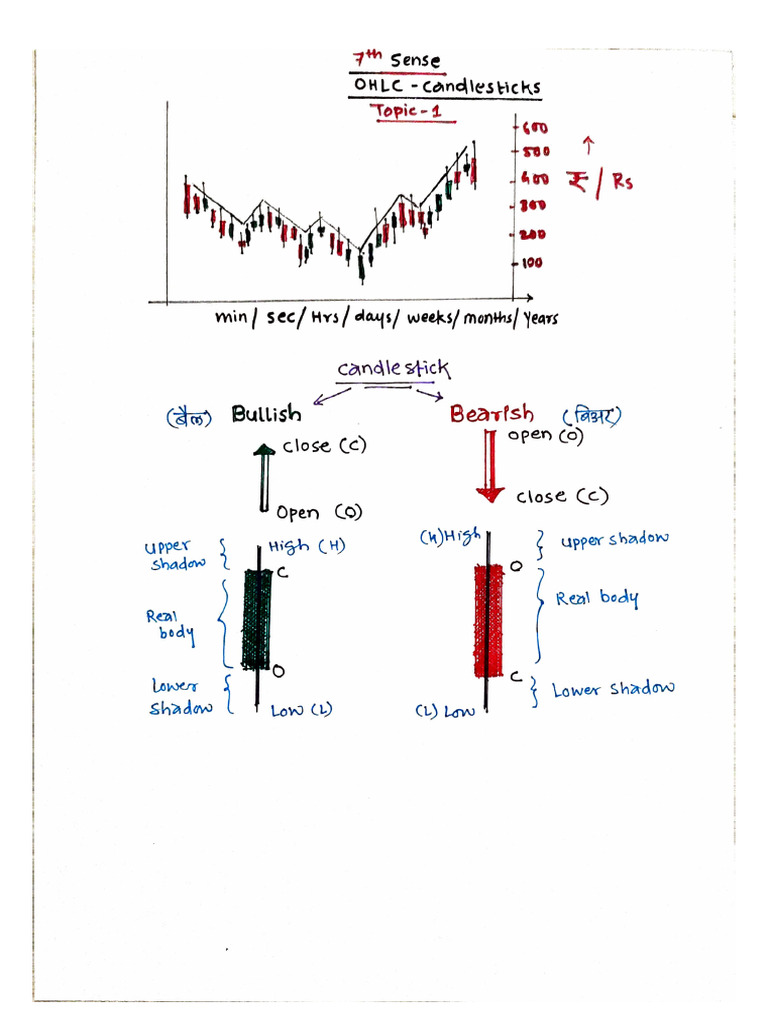 7th Sense
OHLC - Candlesticks
Topic-1
600
500
400
300
200
100
↑
₹ / Rs
min/ sec/ Hrs/ days/ weeks/ months/ Years
Candlestick
(बैल) Bullish
Bearish (बिअर)
close (C)
open (O)
open (O)
close (C)
upper shadow
High (H)
C
Real body
O
Lower shadow
Low (L)
(H) High
upper shadow
O
Real body
C
Lower shadow
(L) Low